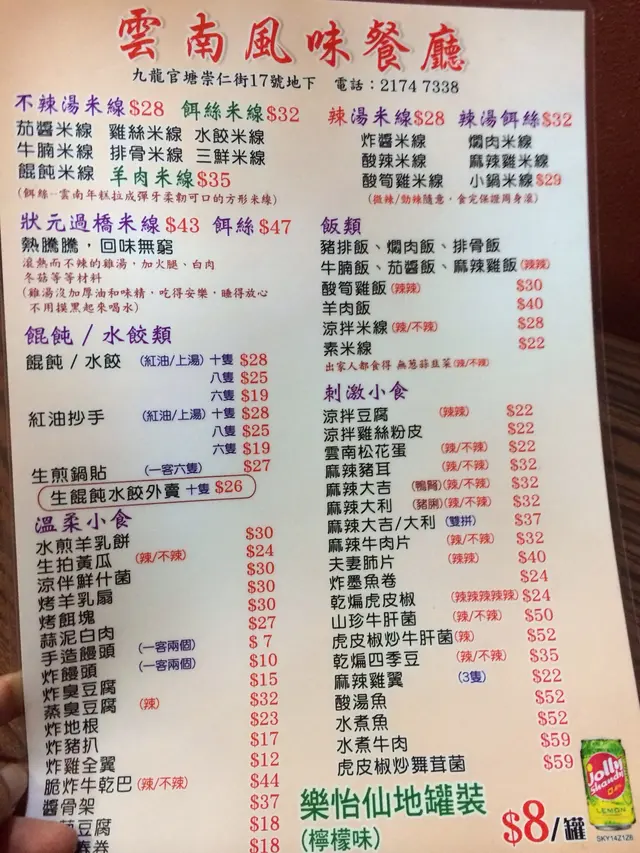 雲南風味餐廳
九龍官塘崇仁街17號地下 電話：2174 7338
不辣湯米線$28 餌絲米線$32
茄醬米線 雞絲米線 水餃米線
牛腩米線 排骨米線 三鮮米線
餛飩米線 羊肉米線$35
(餌絲—雲南年糕拉成彈牙柔軔可口的方形米線)
辣湯米線$28 辣湯餌絲$32
炸醬米線 燜肉米線
酸辣米線 麻辣雞米線
酸筍雞米線 小鍋米線$29
(微辣/勁辣隨意，食完保證周身滾)
狀元過橋米線$43 餌絲$47
熱騰騰，回味無窮
滾熱而不辣的雞湯，加火腿、白肉
冬菇等等材料
(雞湯沒加厚油和味精，吃得安樂，睡得放心
不用摸黑起來喝水)
餛飩/水餃類
餛飩/水餃 (紅油/上湯) 十隻 $28
八隻 $25
六隻 $19
紅油抄手 (紅油/上湯) 十隻 $28
八隻 $25
六隻 $19
生煎鍋貼 (一客六隻) $27
生餛飩水餃外賣 十隻 $26
溫柔小食
水煎羊乳餅 $30
生拍黃瓜 (辣/不辣) $24
涼伴鮮什菌 $30
烤羊乳扇 $30
烤餌塊 $30
蒜泥白肉 $27
手造饅頭 (一客兩個) $ 7
炸饅頭 (一客兩個) $10
炸臭豆腐 $15
蒸臭豆腐 (辣) $32
炸地根 $23
炸豬扒 $17
炸雞全翼 $12
脆炸牛乾巴 (辣/不辣) $44
醬骨架 $37
豆腐 $18
春卷 $18
飯類
豬排飯、燜肉飯、排骨飯
牛腩飯、茄醬飯、麻辣雞飯(辣辣)
酸筍雞飯 (辣辣) $30
羊肉飯 $40
涼拌米線 (辣/不辣) $28
素米線 $22
出家人都食得 無蔥蒜韭菜 (辣/不辣)
刺激小食
涼拌豆腐 (辣辣) $22
涼拌雞絲粉皮 $22
雲南松花蛋 (辣/不辣) $22
麻辣豬耳 (辣/不辣) $32
麻辣大吉 (鴨腎)(辣/不辣) $32
麻辣大利 (豬脷)(辣/不辣) $32
麻辣大吉/大利 (雙拼) $37
麻辣牛肉片 (辣/不辣) $32
夫妻肺片 (辣辣) $40
炸墨魚卷 $24
乾煸虎皮椒 (辣辣辣辣辣) $24
山珍牛肝菌 (辣/不辣) $50
虎皮椒炒牛肝菌(辣) $52
乾煸四季豆 (辣/不辣) $35
麻辣雞翼 (3隻) $22
酸湯魚 $52
水煮魚 $52
水煮牛肉 $59
虎皮椒炒舞茸菌 $59
樂怡仙地罐裝
(檸檬味)
$8/罐
Jolly
Shandy
LEMON
SKY14Z1Z6